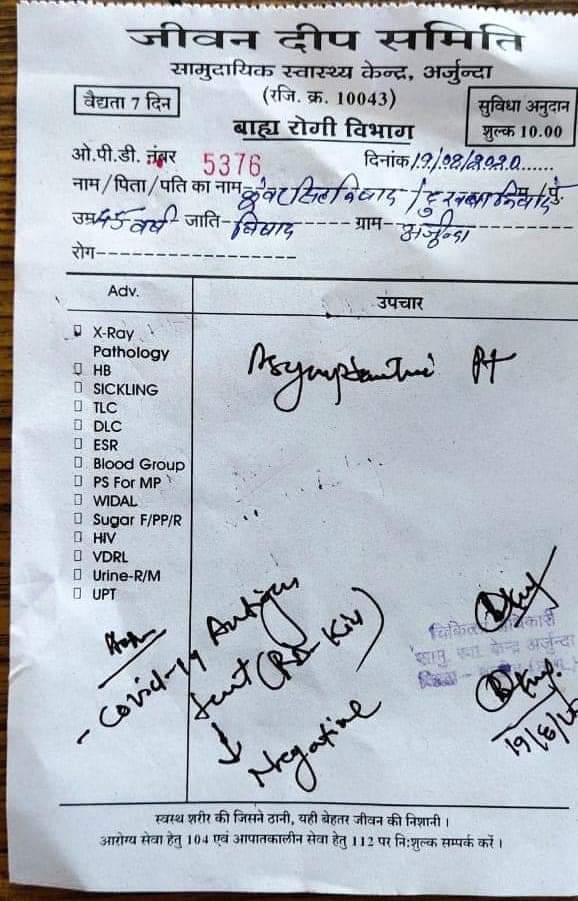 जीवन दीप समिति
सामुदायिक स्वास्थ्य केन्द्र, अर्जुन्दा
(रजि. क्र. 10043)
वैद्यता 7 दिन
सुविधा अनुदान
शुल्क 10.00
बाह्य रोगी विभाग
ओ.पी.डी. नंबर 5376 दिनांक 19/08/2020
नाम/पिता/पति का नाम
उम्र 45 वर्ष जाति- निषाद ग्राम- अर्जुन्दा
रोग-
Adv.
उपचार
X-Ray
Pathology
HB
SICKLING
TLC
DLC
ESR
Blood Group
PS For MP
WIDAL
Sugar F/PP/R
HIV
VDRL
Urine-R/M
UPT
Asymptomatic Pt
- Covid-19 Antigen
Test (RA Kit)
↓
Negative
चिकित्सा अधिकारी
सामु. स्वा. केन्द्र अर्जुन्दा
जिला-
19/8/20
स्वस्थ शरीर की जिसने ठानी, यही बेहतर जीवन की निशानी।
आरोग्य सेवा हेतु 104 एवं आपातकालीन सेवा हेतु 112 पर नि:शुल्क सम्पर्क करें।